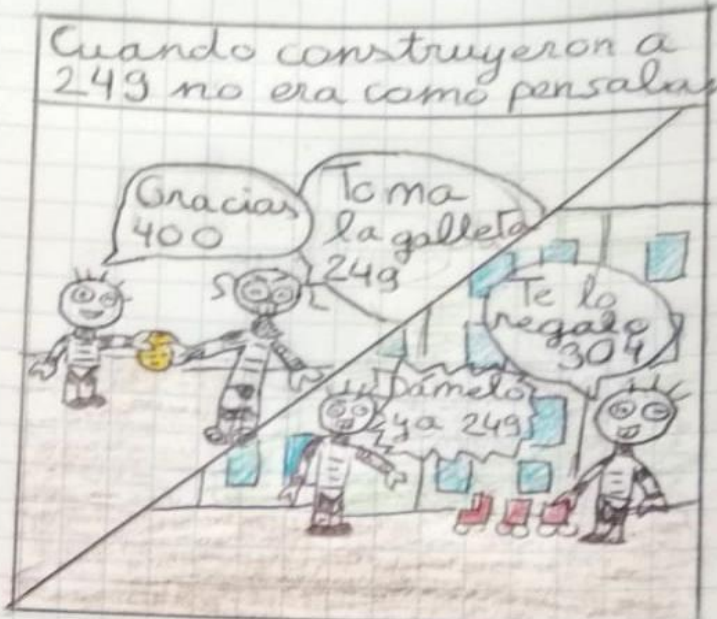 Cuando construyeron a
249 no era como pensabas
Gracias
400
Toma
la galleta
249
Te lo
regalo
304
Dámelo
ya 249